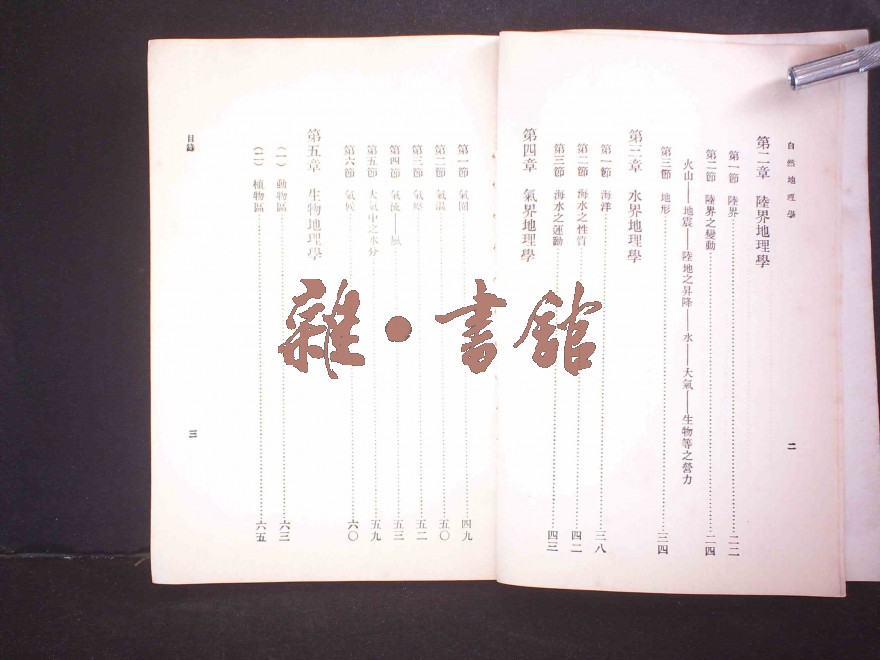 自然地理學
二
第二章 陸界地理學
第一節 陸界 二二
第二節 陸界之變動 二四
火山——地震——陸地之昇降——水——大氣——生物等之營力
第三節 地形 三四
第三章 水界地理學
第一節 海洋 三八
第二節 海水之性質 四二
第三節 海水之運動 四三
第四章 氣界地理學
第一節 氣圍 四九
第二節 氣溫 五〇
第三節 氣壓 五二
第四節 氣流——風 五三
第五節 大氣中之水分 五九
第六節 氣候 六〇
第五章 生物地理學
(一) 動物區 六三
(二) 植物區 六五
目錄
三
雜·書館